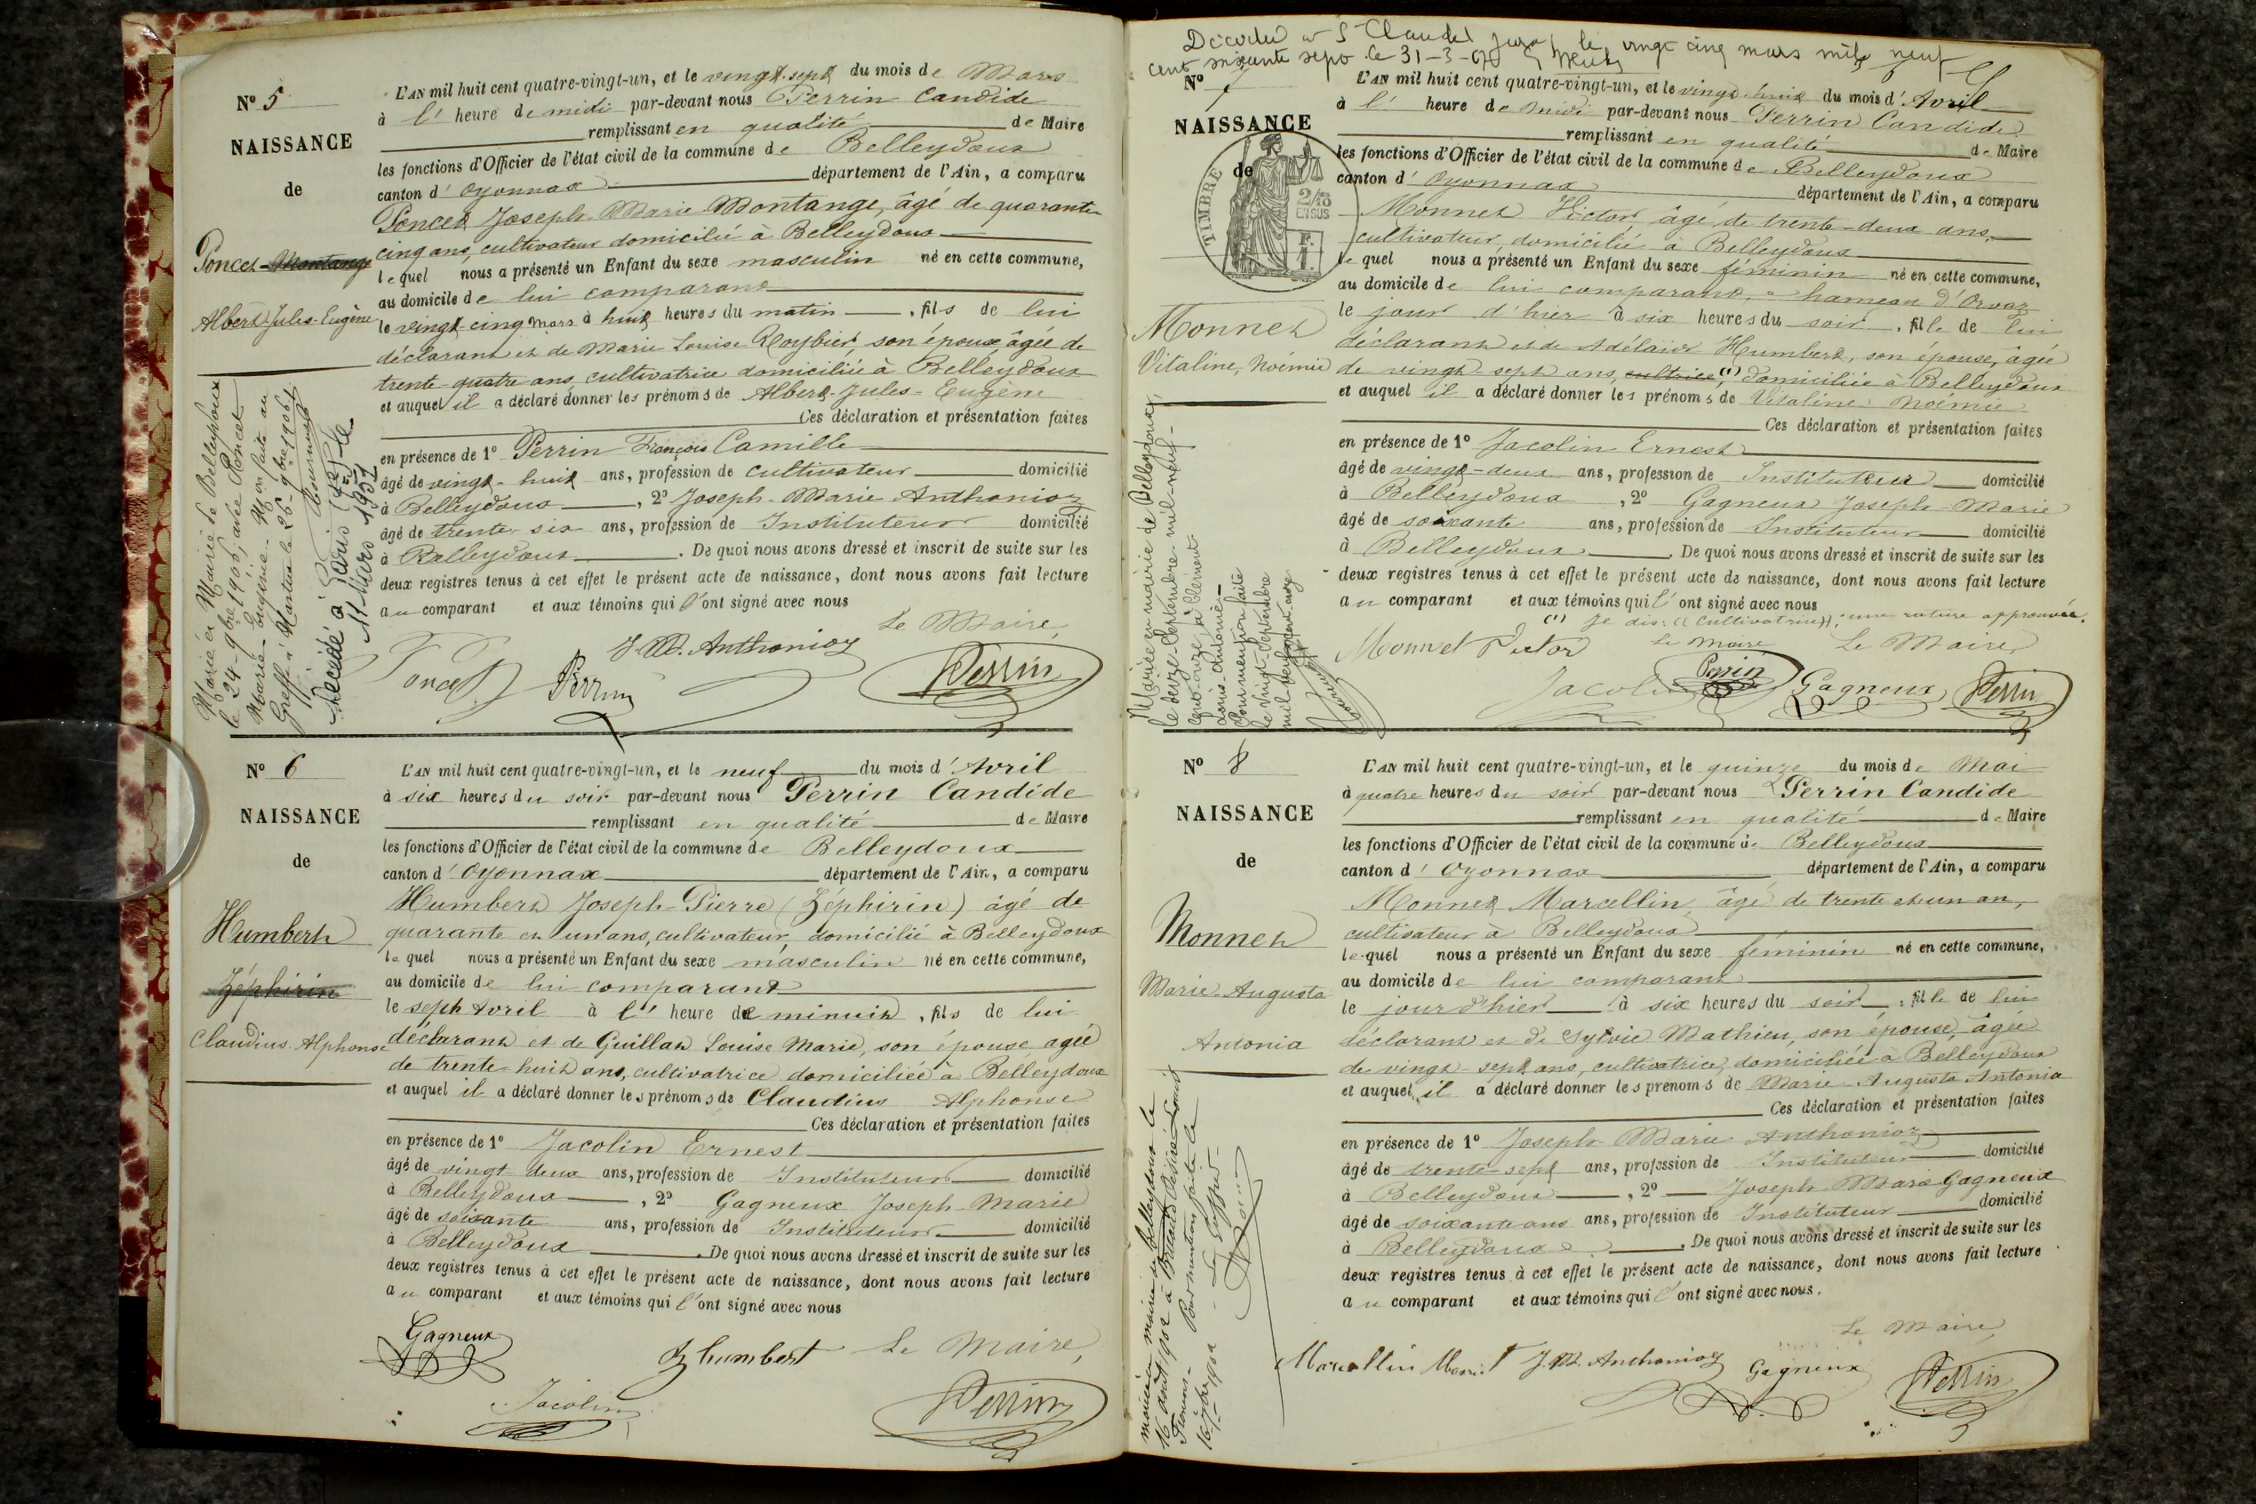 N° 5
NAISSANCE
de
Poncet-Montange
Albert Jules-Eugène
L'AN mil huit cent quatre-vingt-un, et le vingt-sept du mois de Mars
à l' heure de midi par-devant nous Perrin Candide
remplissant en qualité de Maire
les fonctions d'Officier de l'état civil de la commune de Belleydoux
canton d' Oyonnax département de l'Ain, a comparu
Poncet Joseph-Marie Montange, âgé de quarante-
cinq ans, cultivateur domicilié à Belleydoux
lequel nous a présenté un Enfant du sexe masculin né en cette commune,
au domicile de lui comparant
le vingt-cinq mars à huit heures du matin, fils de lui
déclarant et de Marie Louise Roybier, son épouse âgée de
trente-quatre ans, cultivatrice domiciliée à Belleydoux
et auquel il a déclaré donner les prénoms de Albert-Jules-Eugène
Ces déclaration et présentation faites
en présence de 1° Perrin François Camille
âgé de vingt-huit ans, profession de cultivateur domicilié
à Belleydoux, 2° Joseph-Marie Anthonioz
âgé de trente-six ans, profession de Instituteur domicilié
à Belleydoux. De quoi nous avons dressé et inscrit de suite sur les
deux registres tenus à cet effet le présent acte de naissance, dont nous avons fait lecture
au comparant et aux témoins qui l'ont signé avec nous
Le Maire,
J. M. Anthonioz
Poncet Perrin Perrin
Marié en Mairie de Belleydoux
le 24-9bre 1906, avec Poncet
Marie-Eugénie. Mon faite au
Greffe à Nantua le 26-9bre 1906
Décédé à Paris (12e) le
11 Mars 1951
N° 6
NAISSANCE
de
Humbert
Zéphirin
Claudius Alphonse
L'AN mil huit cent quatre-vingt-un, et le neuf du mois d' Avril
à six heures du soir par-devant nous Perrin Candide
remplissant en qualité de Maire
les fonctions d'Officier de l'état civil de la commune de Belleydoux
canton d' Oyonnax département de l'Ain, a comparu
Humbert Joseph-Pierre (Zéphirin) âgé de
quarante et un ans, cultivateur, domicilié à Belleydoux
lequel nous a présenté un Enfant du sexe masculin né en cette commune,
au domicile de lui comparant
le sept Avril à l' heure de minuit, fils de lui
déclarant et de Guillat Louise Marie, son épouse agée
de trente-huit ans, cultivatrice domiciliée à Belleydoux
et auquel il a déclaré donner les prénoms de Claudius Alphonse
Ces déclaration et présentation faites
en présence de 1° Jacolin Ernest
âgé de vingt deux ans, profession de Instituteur domicilié
à Belleydoux, 2° Gagneux Joseph Marie
âgé de soixante ans, profession de Instituteur domicilié
à Belleydoux. De quoi nous avons dressé et inscrit de suite sur les
deux registres tenus à cet effet le présent acte de naissance, dont nous avons fait lecture
au comparant et aux témoins qui l'ont signé avec nous
Gagneux
Zhumbert Le Maire,
Jacolin Perrin
Décédée à St Claude Jura le vingt cinq mars mil neuf
cent soixante sept le 31-3-67
N° 7
NAISSANCE
de
TIMBRE
2/10
EN SUS
Monnet
Vitaline, Noémie
L'AN mil huit cent quatre-vingt-un, et le vingt-huit du mois d' Avril
à l' heure de midi par-devant nous Perrin Candide
remplissant en qualité de Maire
les fonctions d'Officier de l'état civil de la commune de Belleydoux
canton d' Oyonnax département de l'Ain, a comparu
Monnet Victor, âgé de trente-deux ans,
cultivateur, domicilié à Belleydoux
lequel nous a présenté un Enfant du sexe féminin né en cette commune,
au domicile de lui comparant, hameau d'Orvaz
le jour d'hier à six heures du soir, fille de lui
déclarant et de Adélaïde Humbert, son épouse, âgée
de vingt sept ans, cultrice, (1) domiciliée à Belleydoux
et auquel il a déclaré donner les prénoms de Vitaline Noémie
Ces déclaration et présentation faites
en présence de 1° Jacolin Ernest
âgé de vingt-deux ans, profession de Instituteur domicilié
à Belleydoux, 2° Gagneux Joseph-Marie
âgé de soixante ans, profession de Instituteur domicilié
à Belleydoux. De quoi nous avons dressé et inscrit de suite sur les
deux registres tenus à cet effet le présent acte de naissance, dont nous avons fait lecture
au comparant et aux témoins qui l'ont signé avec nous
(1) Je dis: ((cultivatrice)); une rature approuvée.
Monnet Victor Le Maire Le Maire
Perrin
Jacolin Gagneux Perrin
Mariée en mairie de Belleydoux,
le douze Septembre mil-neuf-
cent-onze, à Clément
Louis-Antoine
Pour mention faite
le vingt Septembre
mil neuf cent onze
N° 8
NAISSANCE
de
Monnet
Marie-Augusta
Antonia
L'AN mil huit cent quatre-vingt-un, et le quinze du mois de Mai
à quatre heures du soir par-devant nous Perrin Candide
remplissant en qualité de Maire
les fonctions d'Officier de l'état civil de la commune de Belleydoux
canton d' Oyonnax département de l'Ain, a comparu
Monnet Marcellin âgé de trente et un an,
cultivateur à Belleydoux
lequel nous a présenté un Enfant du sexe féminin né en cette commune,
au domicile de lui comparant
le jour d'hier à six heures du soir, fille de lui
déclarant et de Sylvie Mathieu, son épouse, âgée
de vingt-sept ans, cultivatrice, domiciliée à Belleydoux
et auquel il a déclaré donner les prénoms de Marie Augusta Antonia
Ces déclaration et présentation faites
en présence de 1° Joseph Marie Anthonioz
âgé de trente-sept ans, profession de Instituteur domicilié
à Belleydoux, 2° Joseph Marie Gagneux
âgé de soixante ans ans, profession de Instituteur domicilié
à Belleydoux. De quoi nous avons dressé et inscrit de suite sur les
deux registres tenus à cet effet le présent acte de naissance, dont nous avons fait lecture
au comparant et aux témoins qui l'ont signé avec nous.
Le Maire
Marcellin Monnet J. M. Anthonioz Gagneux Perrin
mariée en mairie de Belleydoux le
16 août 1902 à Louis
Pour mention faite le
1902 - Le Greffier -